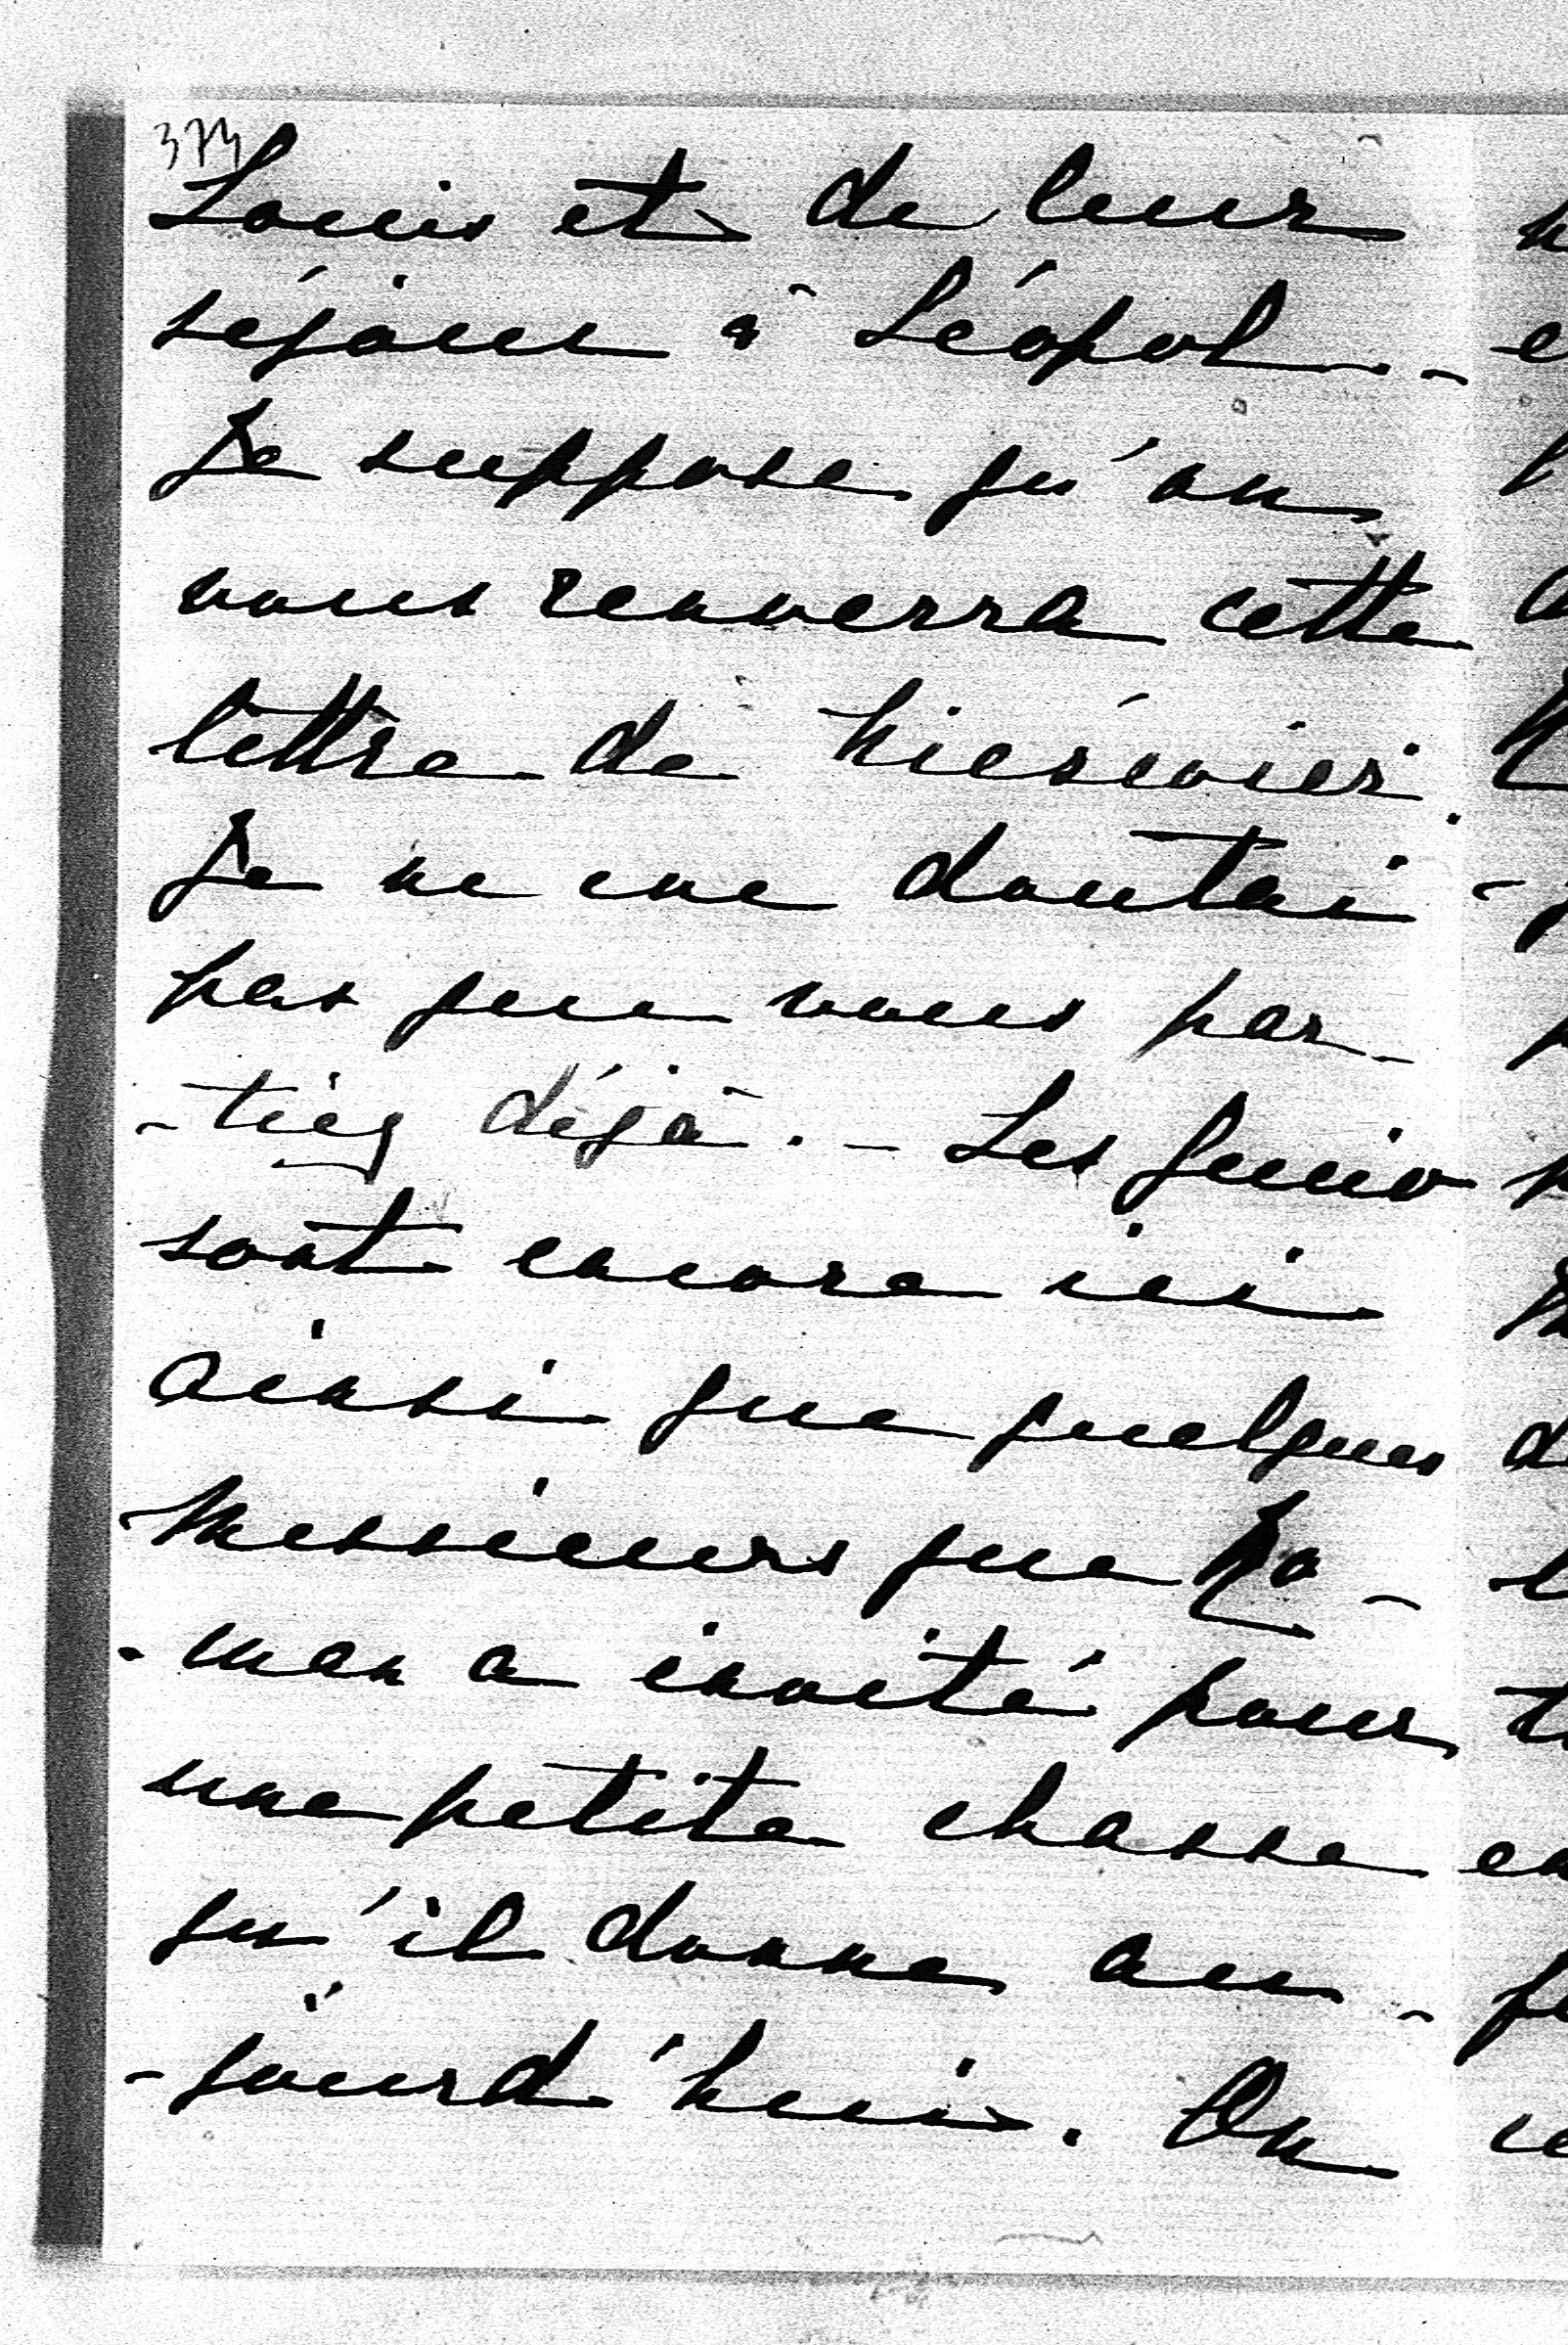 373
Louis et de leur
séjour à Léopol. -
Je suppose qu'on
vous renverra cette
lettre de
Je ne me doutai
pas que vous par-
-tiez déjà. - Les
sont encore ici
ainsi que quelques
Messieurs que Ro-
-man a invité pour
une petite chasse
qu'il donne au-
-jourd'hui. On